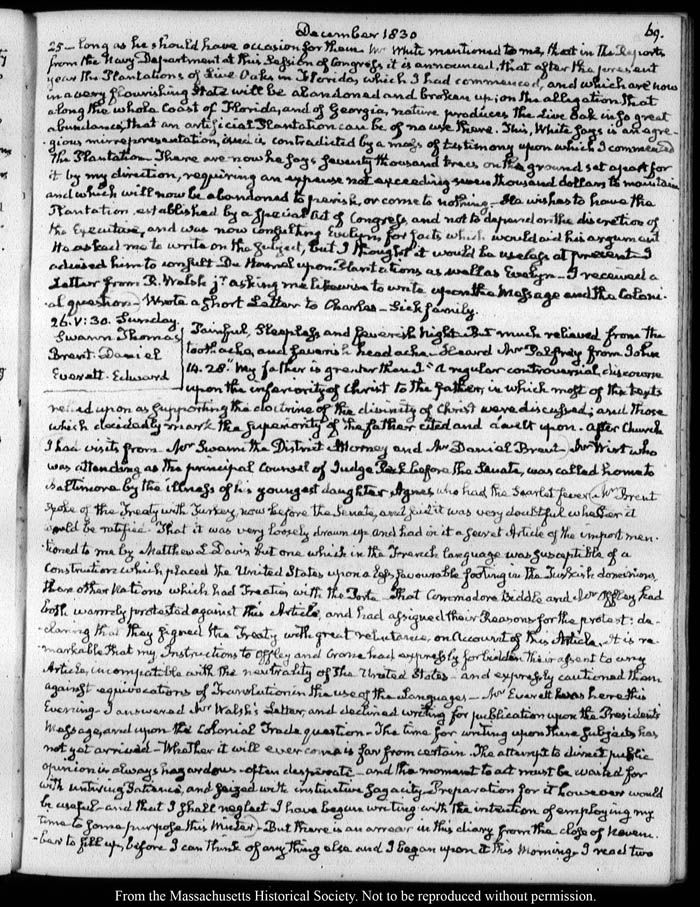 December 1830
69.
25 — long as he should have occasion for them. Mr White mentioned to me, that in the Reports
from the Navy Department at this Session of Congress it is announced, that after the present
year the Plantations of Live Oaks in Florida, which I had commenced, and which are now
in a very flourishing State will be abandoned and broken up, on the allegation that
along the whole Coast of Florida, and of Georgia, nature produces the Live Oak in so great
abundance, that an artificial Plantation can be of no use there. This, White says is an egre-
gious misrepresentation, and is contradicted by a mass of testimony upon which I commenced
the Plantation. There are now he says seventy thousand trees on the ground set apart for
it by my direction, requiring an expense not exceeding seven thousand dollars to maintain
and which will now be abandoned to perish, or come to nothing — He wishes to have the
Plantation established by a Special Act of Congress and not to depend on the discretion of
the Executive, and was now consulting Evelyn, for facts which would aid his argument
He asked me to write on the subject, but I thought it would be useless at present. I
advised him to consult Du Hamel upon Plantations as well as Evelyn — I received a
Letter from R. Walsh jr asking me likewise to write upon the Message and the Coloni-
al question — Wrote a short Letter to Charles — Sick family.
26. V:30. Sunday.
Swann Thomas
Brent. Daniel
Everett. Edward
Painful, Sleepless and feverish Night — But much relieved from the
tooth ache, and feverish head ache. Heard Mr Palfrey from John
14. 28. "My father is greater than I" a regular controversial discourse
upon the inferiority of Christ to the father, in which most of the texts
relied upon as supporting the doctrine of the divinity of Christ were discussed; and those
which decidedly mark the superiority of the father cited and dwelt upon. After Church
I had visits from Mr Swann the District Attorney and Mr Daniel Brent. Mr Wirt who
was attending as the principal Counsel of Judge Peck before the Senate, was called home to
Baltimore by the illness of his youngest daughter Agnes who had the Scarlet fever. Mr Brent
spoke of the Treaty with Turkey, now before the Senate, and said it was very doubtful whether it
would be ratified. That it was very loosely drawn up and had in it a secret Article of the import men-
tioned to me by Matthew L. Davis but one which in the French language was susceptible of a
Construction which placed the United States upon a less favourable footing in the Turkish dominions,
than other Nations which had Treaties with the Porte — That Commodore Biddle and Mr Offley had
both warmly protested against this Article, and had assigned their Reasons for the protest: de-
claring that they signed the Treaty with great reluctance, on Account of this Article. It is re-
markable that my Instructions to Offley and Crane had expressly forbidden their assent to any
Article, incompatible with the neutrality of the United States — and expressly cautioned them
against equivocations of Translation in the use of the Languages — Mr Everett was here this
Evening — I answered Mr Walsh's Letter, and declined writing for publication upon the President's
Message, and upon the Colonial Trade question — The time for writing upon these subjects has
not yet arrived — Whether it will ever come is far from certain. The attempt to direct public
opinion is always hazardous — often desperate — and the moment to act must be waited for
with untiring Patience, and seized with instinctive sagacity — Preparation for it however would
be useful — and that I shall neglect. I have begun writing with the intention of employing my
time to some purpose this Winter — But there is an arrear in this diary from the close of Novem-
ber to fill up, before I can think of any thing else and I began upon it this Morning. I read two
From the Massachusetts Historical Society. Not to be reproduced without permission.